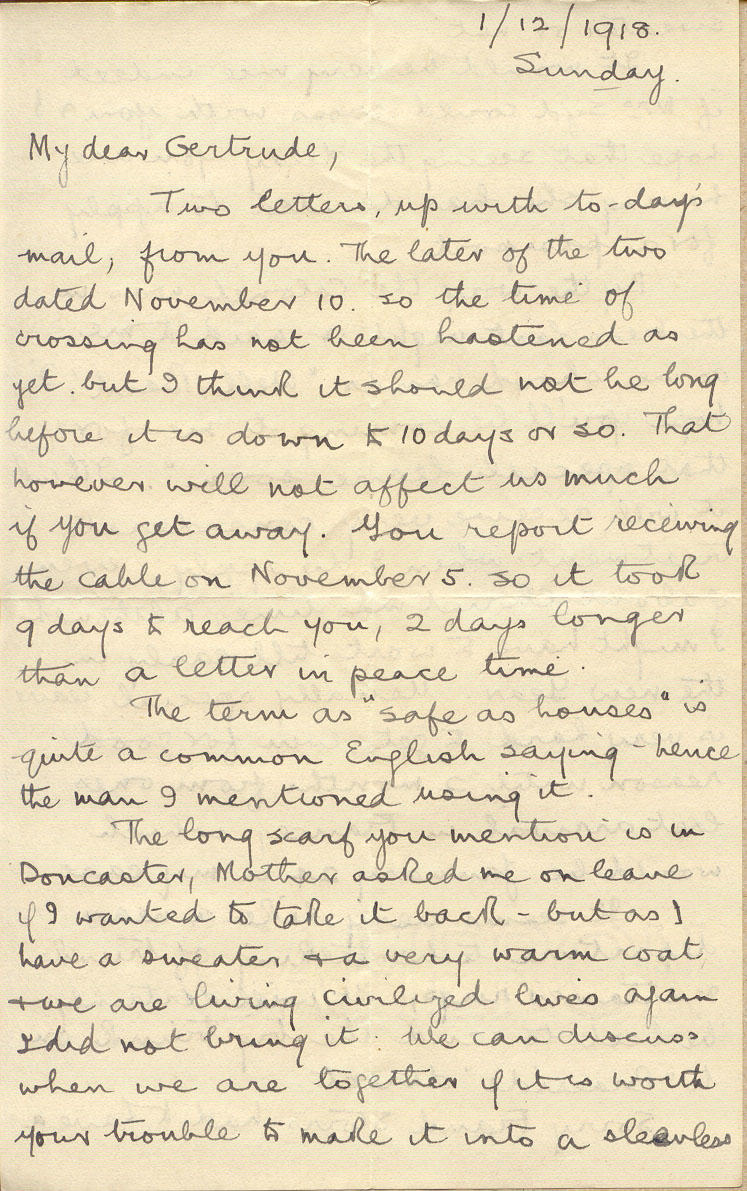 1/12/1918.
Sunday.
My dear Gertrude,
Two letters, up with to-day's
mail, from you. The later of the two
dated November 10. so the time of
crossing has not been hastened as
yet. but I think it should not be long
before it is down to 10 days or so. That
however will not affect us much
if you get away. You report receiving
the cable on November 5. so it took
9 days to reach you, 2 days longer
than a letter in peace time.
The term as "safe as houses" is
quite a common English saying - hence
the man I mentioned using it.
The long scarf you mention is in
Doncaster, Mother asked me on leave
if I wanted to take it back - but as I
have a sweater + a very warm coat
+ we are living civilized lives again
I did not bring it. We can discuss
when we are together if it is worth
your trouble to make it into a sleevless